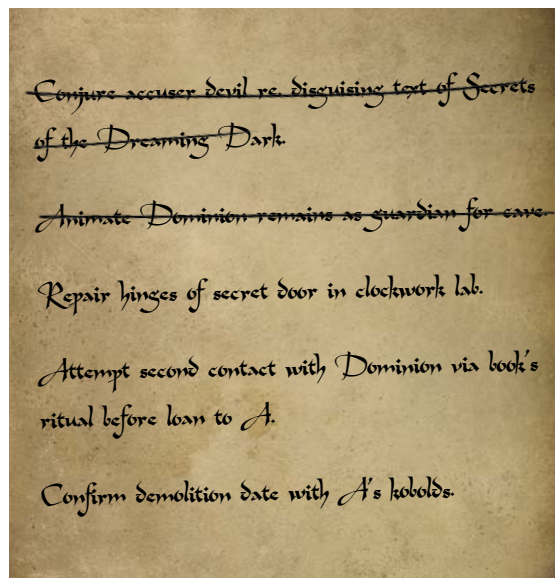 Conjure accuser devil re. disguising text of Secrets
of the Dreaming Dark.
Animate Dominion remains as guardian for cave.
Repair hinges of secret door in clockwork lab.
Attempt second contact with Dominion via book's
ritual before loan to A.
Confirm demolition date with A's kobolds.